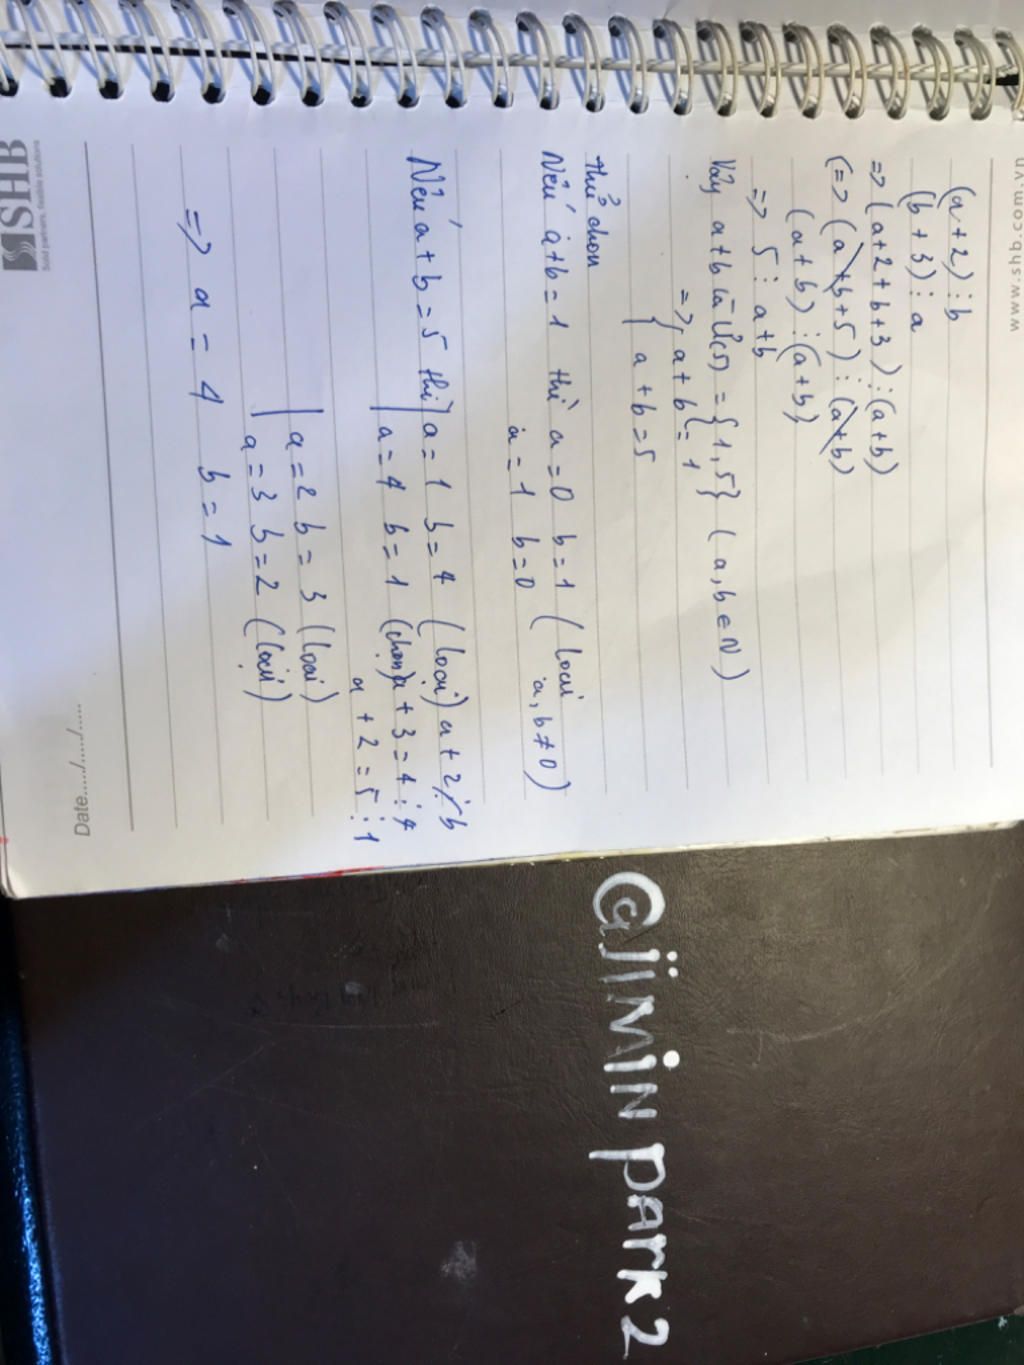 www.shb.com.vn
(a+2) ⋮ b
(b+3) ⋮ a
=> (a+2+b+3) ⋮ (a+b)
(=> (a+b+5) ⋮ (a+b)
(a+b) ⋮ (a+b)
=> 5 ⋮ a+b
Vậy a+b là Ư(5) = {1,5} (a,b ∈ N)
=> { a+b = 1
{ a+b = 5
thử chọn
Nếu a+b=1 thì a=0 b=1 (loại
a=1 b=0 a,b≠0)
Nếu a+b=5 thì a=1 b=4 (loại) a+2 ⋮̸ b
a=4 b=1 (chọn) a+3=4 ⋮ 4
a+2=5 ⋮ 1
a=2 b=3 (loại)
a=3 b=2 (loại)
=> a=4 b=1
SHB
Solid partners, flexible solutions
Date...../...../.....
@JIMIN PARK 2